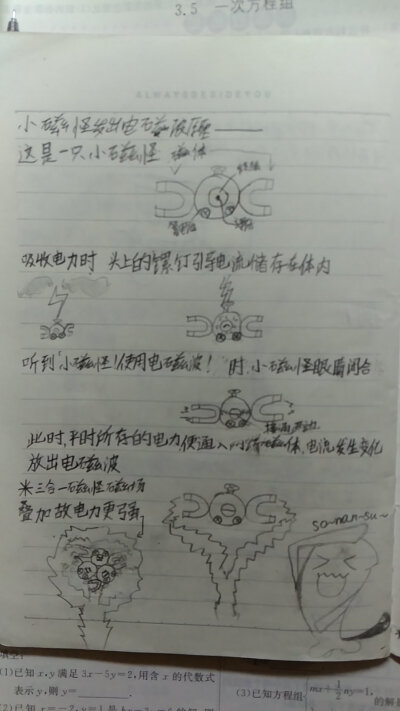 3.5 一次方程组
ALWAYSBESIDEYOU
小磁怪发出电磁波原理——
这是一只小磁怪 磁体
吸收电力时 头上的镙钉引导电流储存在体内
听到“小磁怪!使用电磁波! 时,小磁怪眼睛闭合
此时,平时所存的电力,便通入 磁体,电流发生变化
放出电磁波
米三合一磁怪磁场
叠加故电力更强
so~nan~su~
(1)已知 x,y 满足 3x-5y=2,用含 x 的代数式
表示 y,则 y=
(3)已知方程组